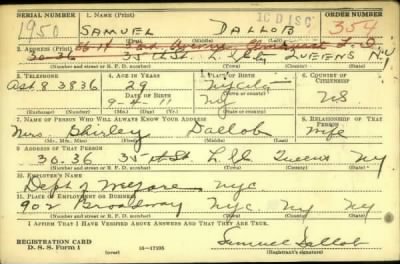 SERIAL NUMBER 1. NAME (Print) ORDER NUMBER
1950 SAMUEL DALLOB 354
IC DISC
2. ADDRESS (Print)
30-36 35th St. L. I. City QUEENS N.Y.
(Number and street or R. F. D. number) (Town) (County) (State)
3. TELEPHONE 4. AGE IN YEARS 5. PLACE OF BIRTH 6. COUNTRY OF CITIZENSHIP
Ast 8 3836 29 NYC
DATE OF BIRTH
9-4-11 NY US
(Exchange) (Number) (Mo.) (Day) (Yr.) (State or country)
7. NAME OF PERSON WHO WILL ALWAYS KNOW YOUR ADDRESS 8. RELATIONSHIP OF THAT PERSON
Mrs. Shirley Dallob Wife
(Mr., Mrs., Miss) (First) (Middle) (Last)
9. ADDRESS OF THAT PERSON
30-36 35th St L.I.C. Queens NY
(Number and street or R. F. D. number) (Town) (County) (State)
10. EMPLOYER'S NAME
Dept of Welfare NYC
11. PLACE OF EMPLOYMENT OR BUSINESS
902 Broadway NYC NY NY
(Number and street or R. F. D. number) (Town) (County) (State)
I AFFIRM THAT I HAVE VERIFIED ABOVE ANSWERS AND THAT THEY ARE TRUE.
REGISTRATION CARD
D. S. S. Form 1 (over) 16-17105 Samuel Dallob
(Registrant's signature)